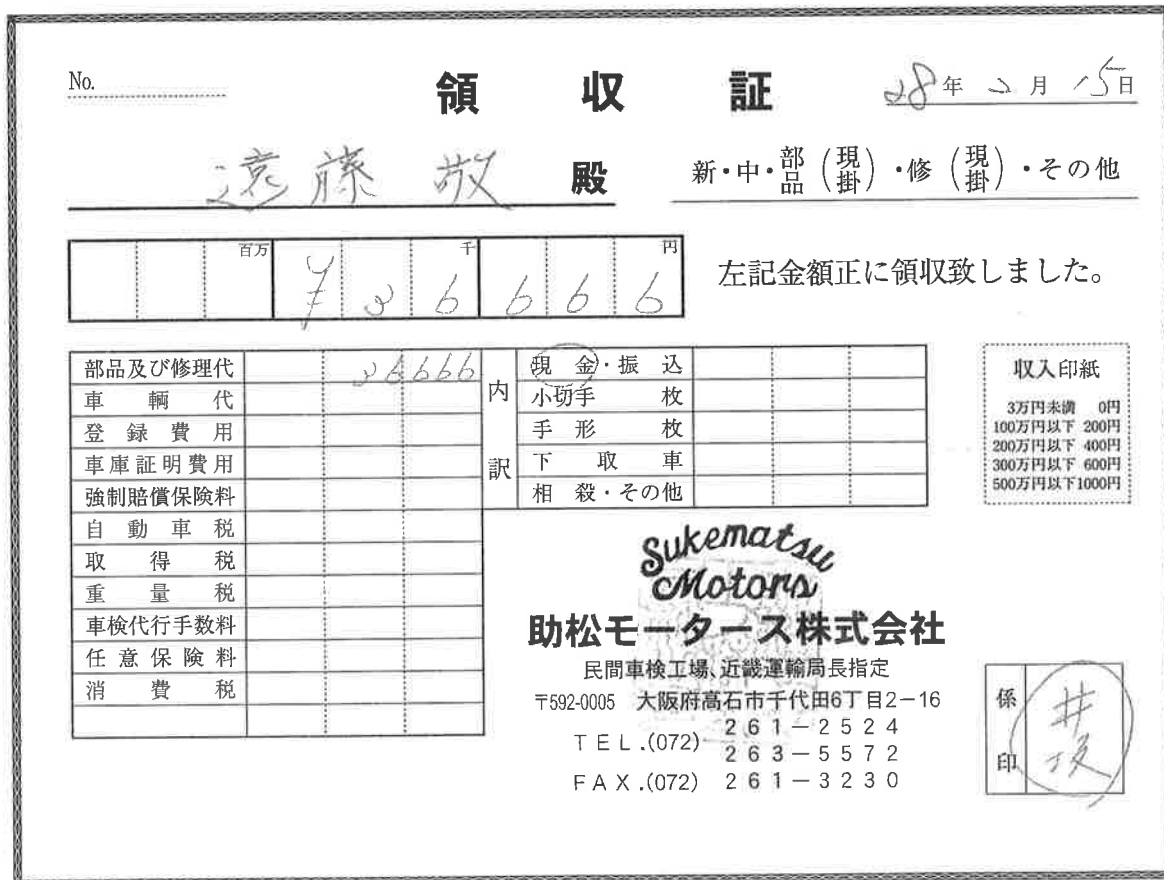 No.
領収証
28年2月15日
遠藤 敬 殿
新・中・部品(現掛)・修(現掛)・その他
百万 千 円
¥36666
左記金額正に領収致しました。
部品及び修理代 36666
車輌代
登録費用
車庫証明費用
強制賠償保険料
自動車税
取得税
重量税
車検代行手数料
任意保険料
消費税
内訳
現金・振込
小切手 枚
手形 枚
下取車
相殺・その他
収入印紙
3万円未満 0円
100万円以下 200円
200万円以下 400円
300万円以下 600円
500万円以下1000円
Sukematsu
Motors
助松モータース株式会社
民間車検工場、近畿運輸局長指定
〒592-0005 大阪府高石市千代田6丁目2-16
TEL.(072) 261-2524
263-5572
FAX.(072) 261-3230
係印
井